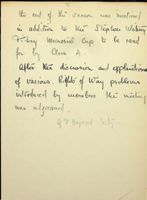 the end of the season was mentioned
in addition to the Stephen Watkins
Fishing Memorial Cup to be raced
for by Class A.
After the discussion and explanations
of various Rights of Way problems
introduced by members the meeting
was adjourned.